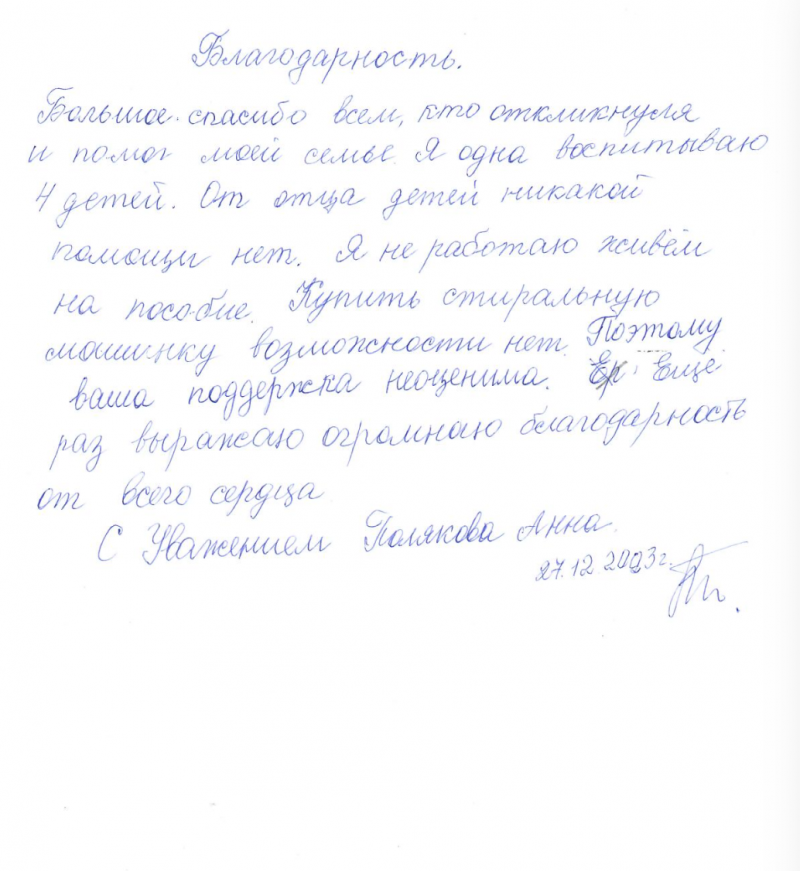 Благодарность.
Большое спасибо всем, кто откликнулся
и помог моей семье. Я одна воспитываю
4 детей. От отца детей никакой
помощи нет. Я не работаю живём
на пособие. Купить стиральную
машинку возможности нет. Поэтому
ваша поддержка неоценима. Ещё
раз выражаю огромную благодарность
от всего сердца
С Уважением Полякова Анна.
27.12.2023г.